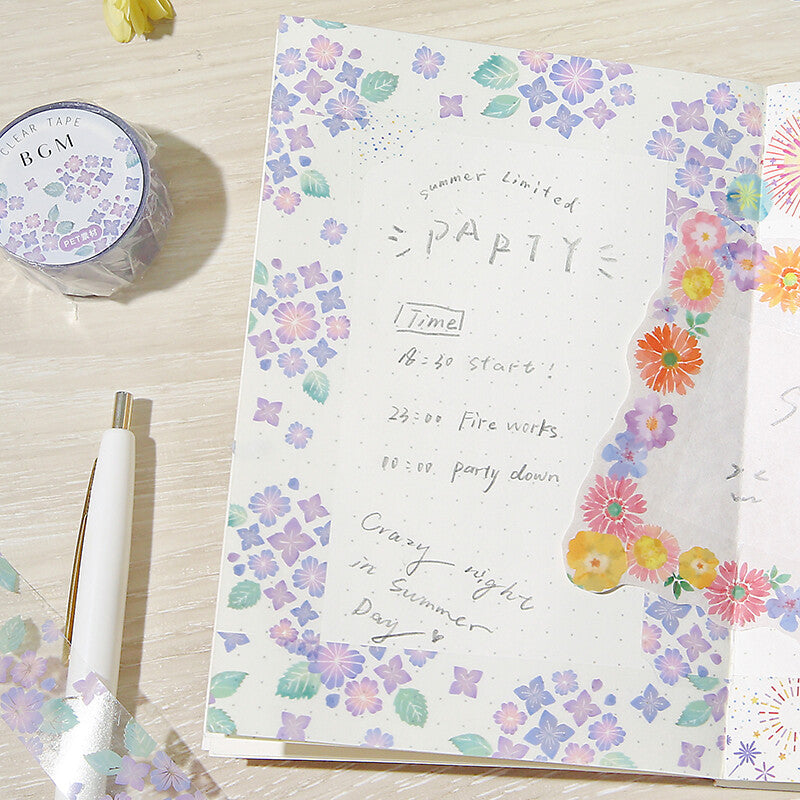 CLEAR TAPE
BGM
PET素材
summer Limited
PARTY
Time
18:30 start!
23:00 Fireworks
00:00 party down
Crazy night
in Summer
Day